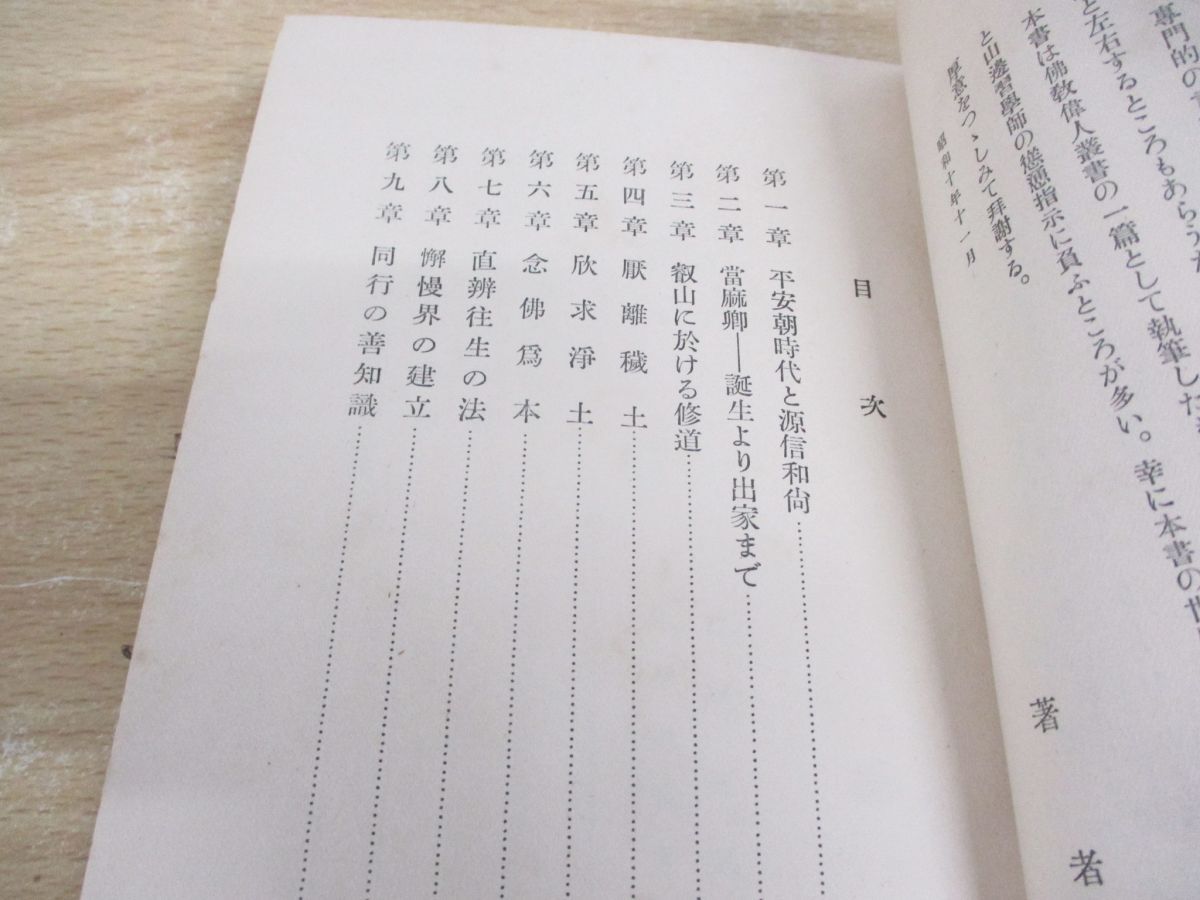 專門的の
と左右するところもあらうか
本書は佛教偉人叢書の一篇として執筆した
と山邊習學師の慫慂指示に負ふところが多い。幸に本書の世
厚意をつゝしみて拜謝する。
昭和十年十一月
著者
目次
第一章 平安朝時代と源信和尙
第二章 當麻卿――誕生より出家まで
第三章 叡山に於ける修道
第四章 厭離穢土
第五章 欣求淨土
第六章 念佛爲本
第七章 直辨往生の法
第八章 懈慢界の建立
第九章 同行の善知識